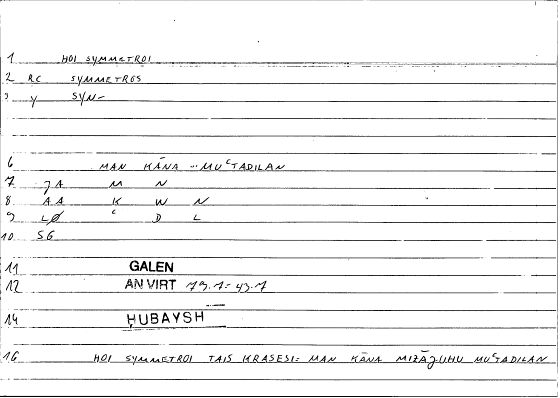 1 HOI SYMMETROI
2 RC SYMMETROS
3 Y SYN-
6 MAN KĀNA -- MUʿTADILAN
7 JA M N
8 AA K W N
9 LØ ʿ D L
10 SG
11 GALEN
12 AN VIRT 79.1 = 43.7
14 ḤUBAYSH
16 HOI SYMMETROI TAIS KRASESI = MAN KĀNA MIZĀǦUHU MUʿTADILAN